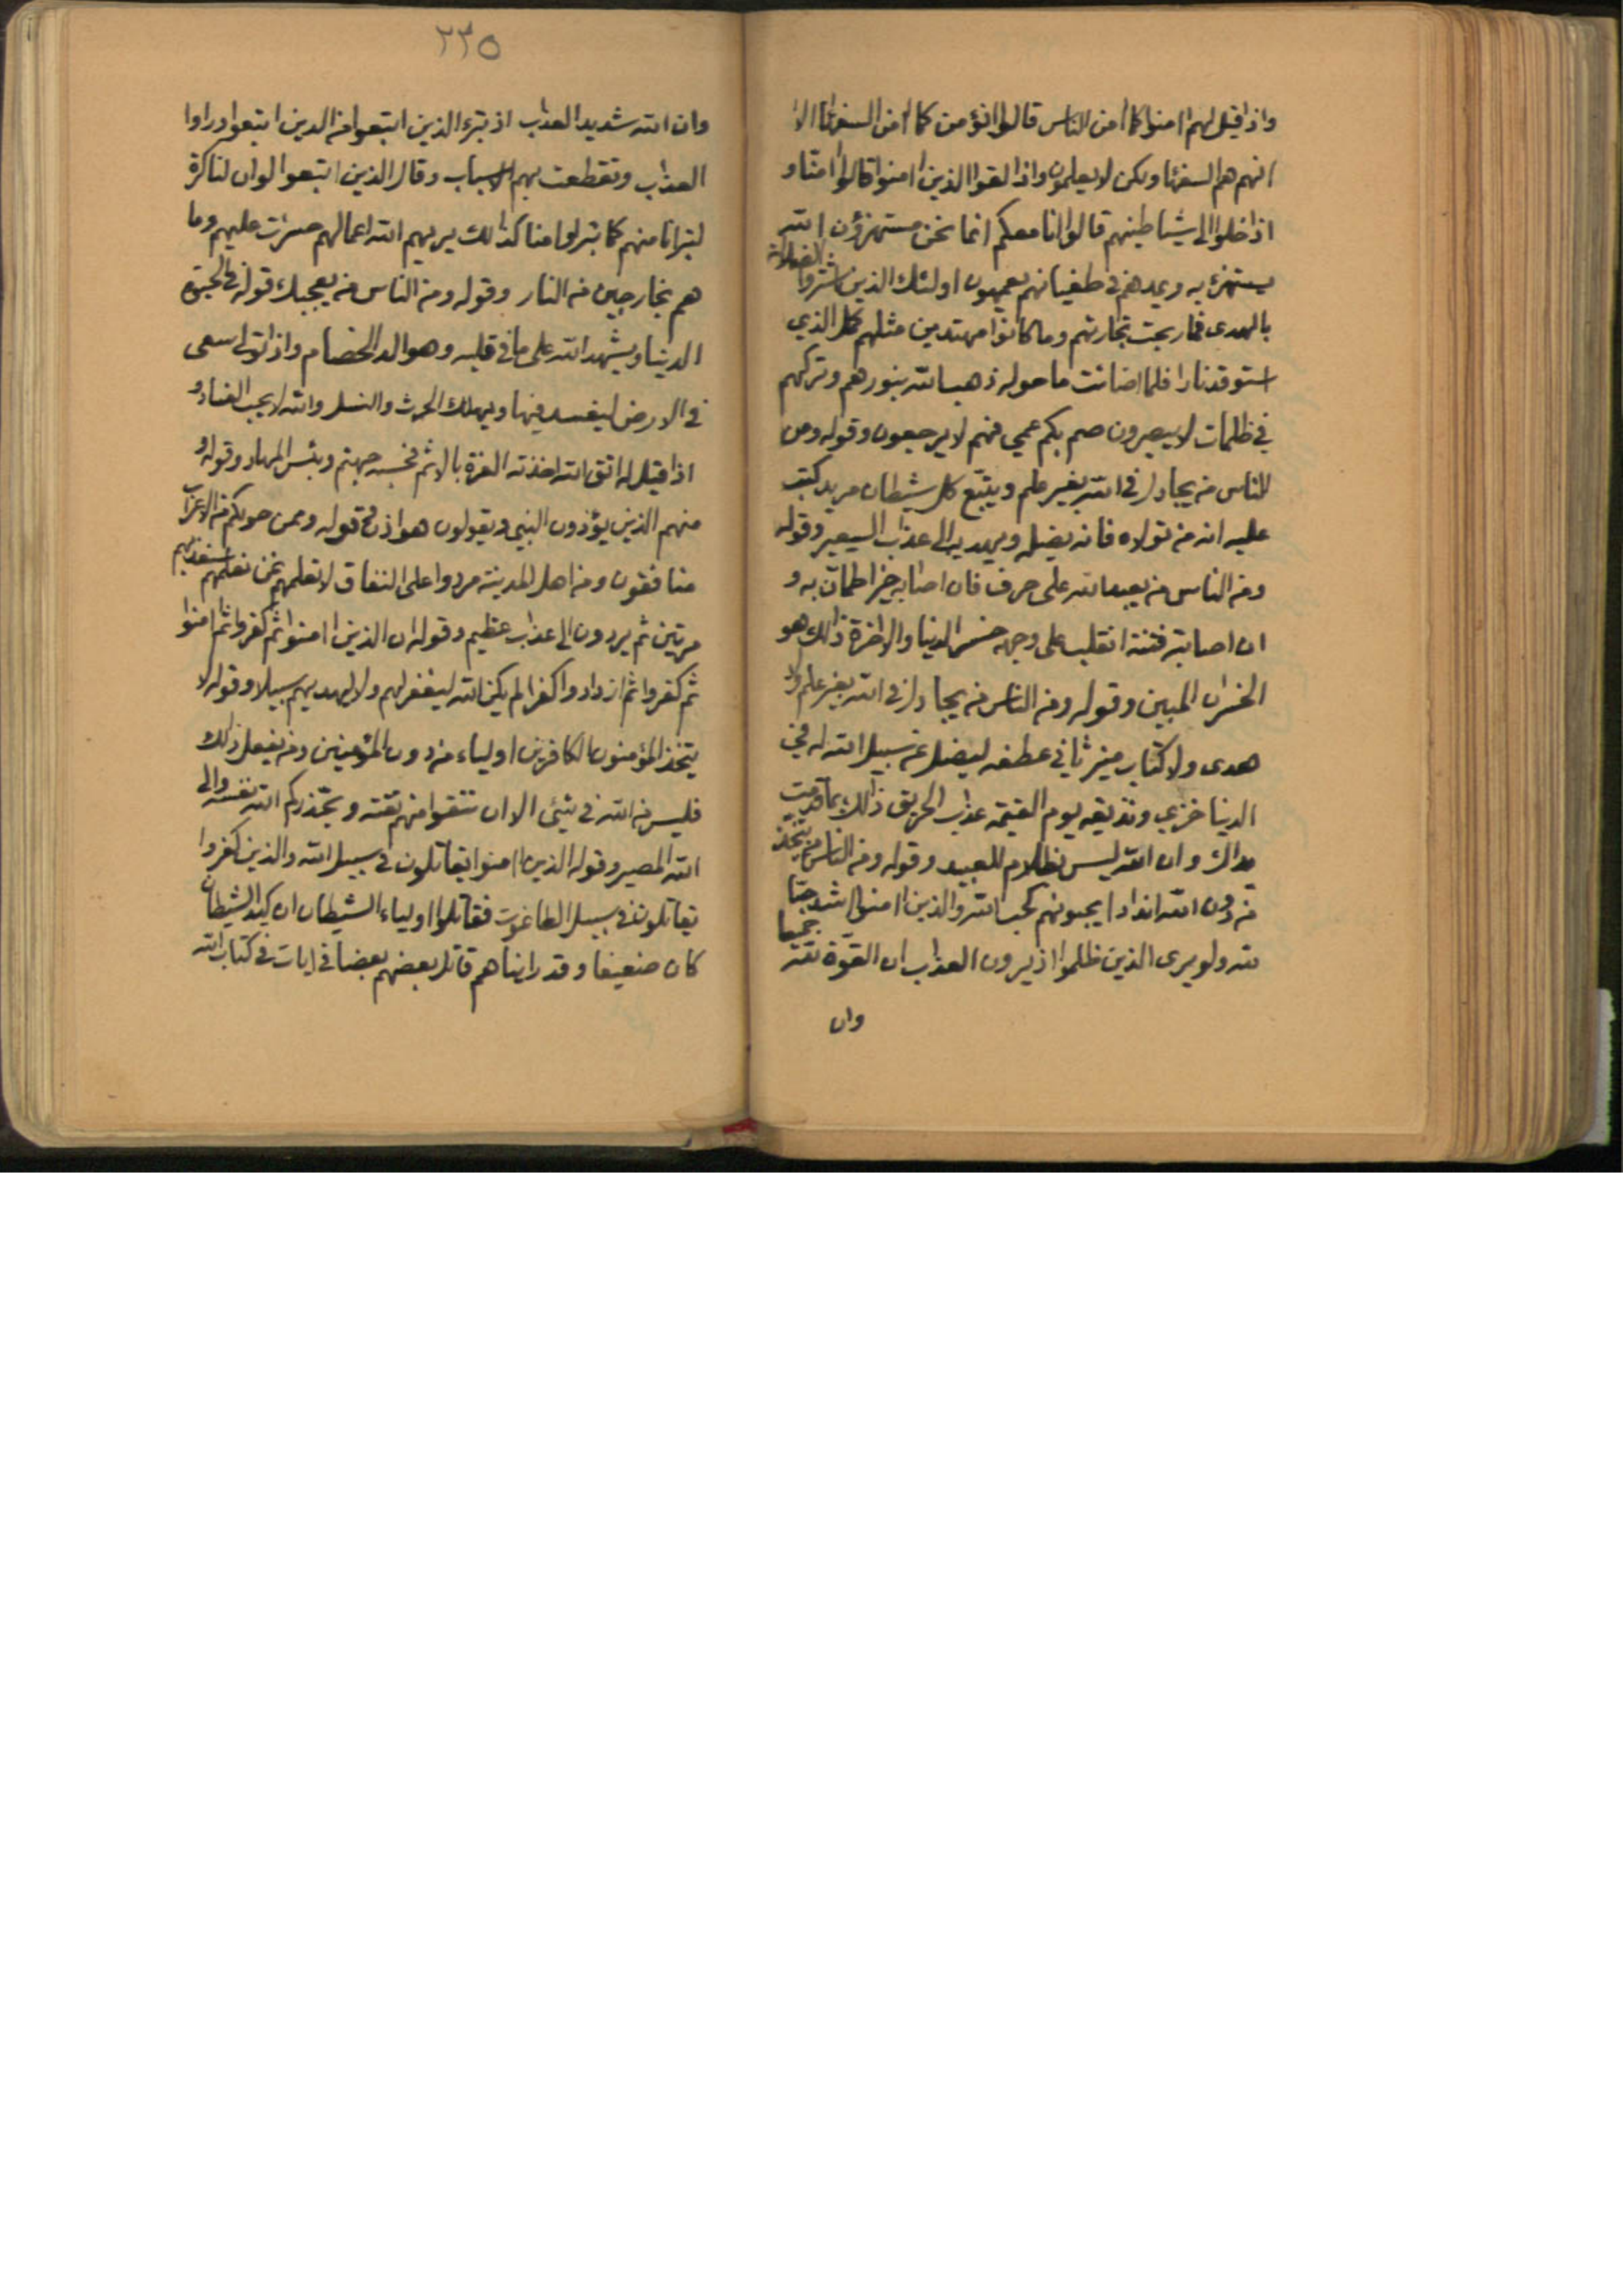 واذا قيل لهم اامنوا كما اامن الناس قالوا انؤمن كما اامن السفهآا الا
انهم هم السفهآا ولكن لا يعلمون واذا لقوا الذين اامنوا قالوا اامنا و
اذا خلوا الى شياطينهم قالوا انا معكم انما نحن مستهزؤن الله
يستهزئ به ويمدهم في طغيانهم يعمهون اولئك الذين اشتروا الضلالة
بالهدى فما ربحت تجارتهم وما كانوا مهتدين مثلهم كمثل الذي
استوقد نارا فلما اضائت ما حوله ذهب الله بنورهم وتركهم
في ظلمات لا يبصرون صم بكم عمي فهم لا يرجعون وقوله ومن
الناس من يجادل في الله بغير علم ويتبع كل شيطان مريد كتب
عليه انه من تولاه فانه يضله ويهديه الى عذاب السعير وقوله
ومن الناس من يعبد الله على حرف فان اصابه خير اطمان به و
ان اصابته فتنة انقلب على وجهه خسر الدنيا والاخرة ذالك هو
الخسران المبين وقوله ومن الناس من يجادل في الله بغير علم ولا
هدى ولا كتاب منير ثاني عطفه ليضل عن سبيل الله له في
الدنيا خزي ونذيقه يوم القيمة عذاب الحريق ذالك بما قدمت
يداك وان الله ليس بظلام للعبيد وقوله ومن الناس من يتخذ
من دون الله اندادا يحبونهم كحب الله والذين اامنوا اشد حبا
لله ولو يرى الذين ظلموا اذ يرون العذاب ان القوة لله جميعا
وان
٢٣٥
وان الله شديد العذاب اذ تبرء الذين اتبعوا من الذين اتبعوا وراوا
العذاب وتقطعت بهم الاسباب وقال الذين اتبعوا لو ان لنا كرة
لتبرانا منهم كما تبرلوا منا كذالك يريهم الله اعمالهم حسرات عليهم وما
هم بخارجين من النار وقوله ومن الناس من يعجبك قوله في الحيوة
الدنيا ويشهد الله على ما في قلبه وهو الد الخصام واذا تولى سعى
في الارض ليفسد فيها ويهلك الحرث والنسل والله لا يحب الفساد و
اذا قيل له اتق الله اخذته العزة بالاثم فحسبه جهنم وبئس المهاد وقوله و
منهم الذين يؤذون النبي ويقولون هو اذن قوله وممن حولكم من الاعراب
منافقون ومن اهل المدينة مردوا على النفاق لا تعلمهم نحن نعلمهم سنعذبهم
مرتين ثم يردون الى عذاب عظيم وقوله ان الذين اامنوا ثم كفروا ثم اامنوا
ثم كفروا ثم ازدادوا كفرا لم يكن الله ليغفر لهم ولا ليهديهم سبيلا وقوله لا
يتخذ المؤمنون الكافرين اولياء من دون المؤمنين ومن يفعل ذلك
فليس من الله في شيئ الا ان تتقوا منهم تقته ويحذركم الله نفسه والى
الله المصير وقوله الذين اامنوا يقاتلون في سبيل الله والذين كفروا
يقاتلون في سبيل الطاغوت فقاتلوا اولياء الشيطان ان كيد الشيطان
كان ضعيفا وقد رايناهم قاتل بعضهم بعضا في ايات في كتاب الله